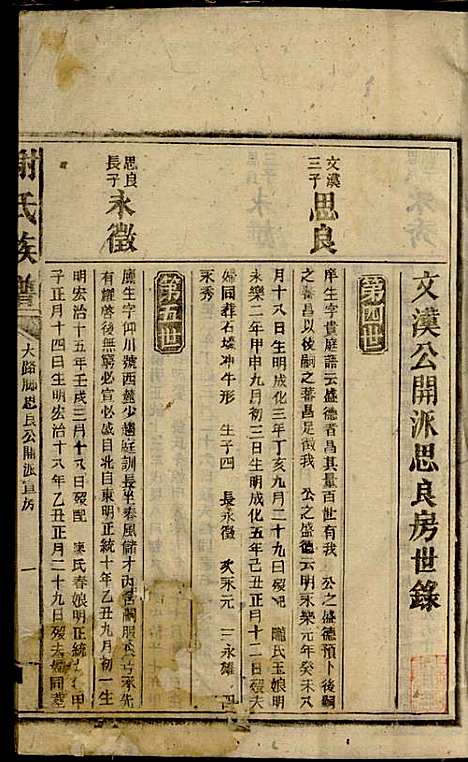 文漠公開派思良房世錄
第四世
文漠
三子
思良
庠生字貴庭語云盛德者昌其量百世有我 公之盛德預卜後嗣
之蕃昌以後嗣之蕃昌足徵我 公之盛德云明永樂元年癸未八
月十八日生明成化三年丁亥九月二十九日歿配 龐氏玉娘明
永樂二年甲申九月初三日生明成化五年己丑正月十二日歿夫
婦同葬石壋冲午形 生子四 長永徵 次永元 三永雄 四
永秀
第五世
思良
長子
永徵
廩生字仰川號西麓少趨庭訓長坐春風儲才丙舍嗣服 琢先
有耀啓後無窮必宣必盛目北自東明正統十年乙丑九月初一生
明宏治十五年壬戌三月十八日歿配 廖氏春娘明正統 甲
子正月十四日生明宏治十八年乙丑正月二十九日歿夫婦同葬
謝氏族譜
大降腳思良公開派宣房
一